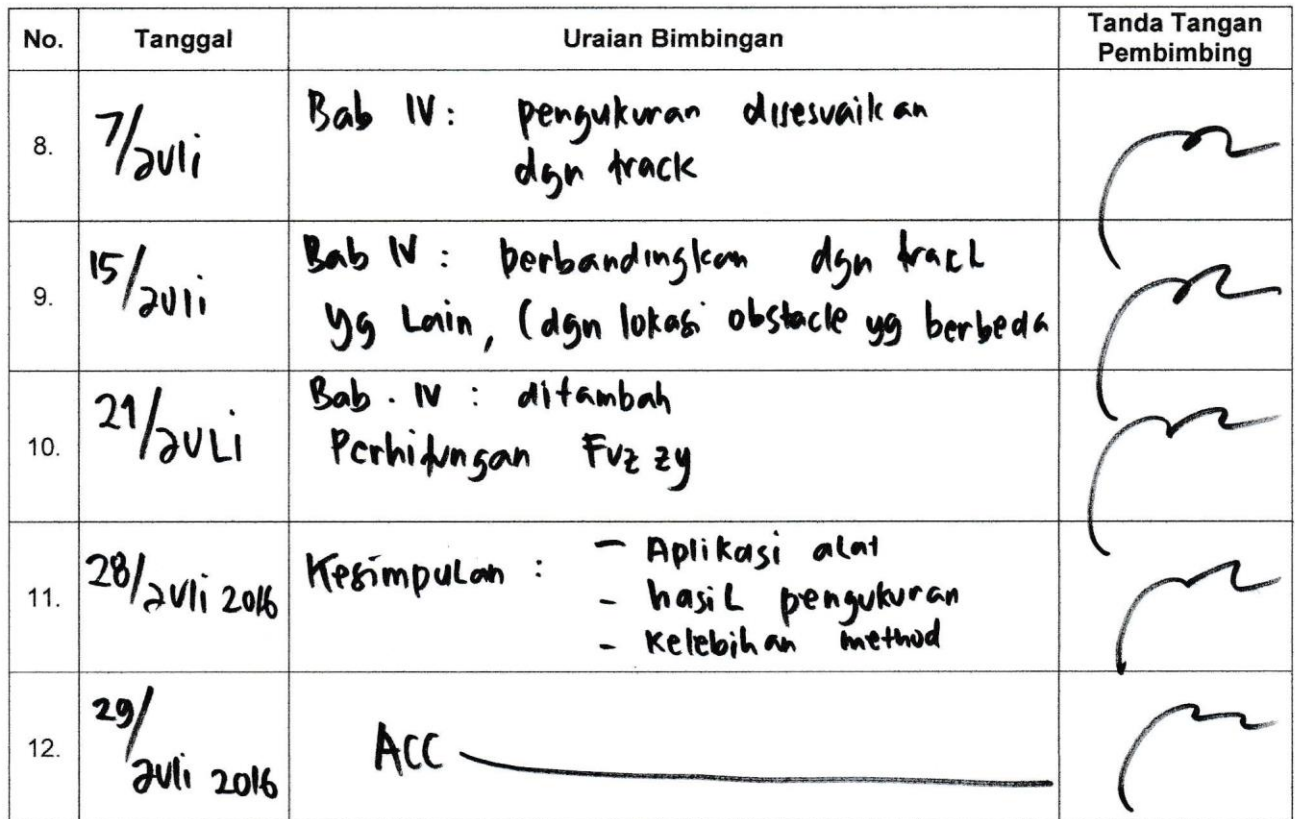 No. Tanggal Uraian Bimbingan Tanda Tangan
Pembimbing
8. 7/Juli Bab IV: pengukuran disesuaikan
dgn track
9. 15/Juli Bab IV: berbandingkan dgn track
yg Lain, (dgn lokasi obstacle yg berbeda
10. 21/JULi Bab. IV: ditambah
Perhitungan Fuzzy
11. 28/Juli 2016 Kesimpulan: - Aplikasi alat
- hasil pengukuran
- Kelebihan method
12. 29/
Juli 2016 ACC